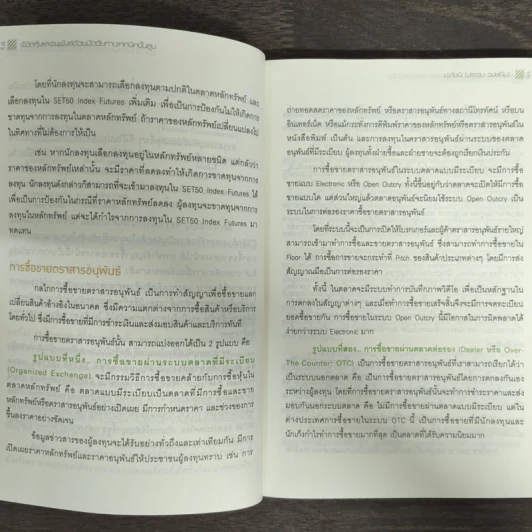 โดยที่นักลงทุนจะสามารถเลือกลงทุนตามปกติในตลาดหลักทรัพย์ และ
เลือกลงทุนใน SET50 Index Futures เพิ่มเติม เพื่อเป็นการป้องกันไม่ให้เกิดการ
ขาดทุนจากการลงทุนในตลาดหลักทรัพย์ ถ้าราคาของหลักทรัพย์เปลี่ยนแปลงไป
ในทิศทางที่ไม่ต้องการให้เป็น
เช่น หากนักลงทุนเลือกลงทุนอยู่ในหลักทรัพย์หลายชนิด แต่กลัวว่า
ราคาของหลักทรัพย์เหล่านั้น จะมีราคาที่ลดลงทำให้เกิดการขาดทุนจากการ
ลงทุน นักลงทุนดังกล่าวก็สามารถที่จะเข้ามาลงทุนใน SET50 Index Futures ได้
เพื่อเป็นการป้องกันในกรณีที่ราคาหลักทรัพย์ลดลง ผู้ลงทุนจะขาดทุนจากการ
ลงทุนในหลักทรัพย์ แต่จะได้กำไรจากการลงทุนใน SET50 Index Futures มา
ทดแทน
การซื้อขายตราสารอนุพันธ์
กลไกการซื้อขายตราสารอนุพันธ์ เป็นการทำสัญญาเพื่อซื้อขายแลก
เปลี่ยนสินค้าอ้างอิงในอนาคต ซึ่งมีความแตกต่างจากการซื้อสินค้าหรือบริการ
โดยทั่วไป ซึ่งมีการซื้อขายที่มีการชำระเงินและส่งมอบสินค้าและบริการทันที
การซื้อขายตราสารอนุพันธ์นั้น สามารถแบ่งออกได้เป็น 2 รูปแบบ คือ
รูปแบบที่หนึ่ง... การซื้อขายผ่านระบบตลาดที่มีระเบียบ
(Organized Exchange) จะมีกรรมวิธีการซื้อขายคล้ายกับการซื้อหุ้นใน
ตลาดหลักทรัพย์ คือ ตลาดแบบมีระเบียบเป็นตลาดที่มีการซื้อและขาย
หลักทรัพย์หรือตราสารอนุพันธ์อย่างเปิดเผย มีการกำหนดราคา และช่วงของการ
ขึ้นลงราคาอย่างชัดเจน
ข้อมูลข่าวสารของผู้ลงทุนจะได้รับอย่างทั่วถึงและเท่าเทียมกัน มีการ
เปิดเผยราคาหลักทรัพย์และราคาอนุพันธ์ให้ประชาชนผู้ลงทุนทราบ เช่น การ
ถ่ายทอดสดราคาของหลักทรัพย์ หรือตราสารอนุพันธ์ทางสถานีโทรทัศน์ หรือบน
อินเทอร์เน็ต หรือแม้กระทั่งการตีพิมพ์ราคาของหลักทรัพย์หรือตราสารอนุพันธ์ใน
หนังสือพิมพ์ เป็นต้น และการลงทุนในตราสารอนุพันธ์ผ่านระบบของตลาด
อนุพันธ์ที่มีระเบียบ ผู้ลงทุนทั้งฝ่ายซื้อและฝ่ายขายจะต้องถูกเรียกเงินประกัน
การซื้อขายตราสารอนุพันธ์ในระบบตลาดแบบมีระเบียบ จะมีการซื้อ
ขายแบบ Electronic หรือ Open Outcry ทั้งนี้ขึ้นอยู่กับว่าตลาดจะเปิดให้มีการซื้อ
ขายแบบใด แต่ส่วนใหญ่แล้วตลาดอนุพันธ์จะนิยมใช้ระบบ Open Outcry เป็น
ระบบในการต่อรองราคาซื้อขายตราสารอนุพันธ์
โดยที่ระบบนี้จะเป็นการเปิดให้โบรกเกอร์และผู้ค้าตราสารอนุพันธ์รายใหญ่
สามารถเข้ามาทำการซื้อและขายตราสารอนุพันธ์ ซึ่งสามารถทำการซื้อขายใน
Floor ได้ การซื้อการขายจะกระทำที่ Pitch ของสินค้าประเภทต่างๆ โดยมีการส่ง
สัญญาณมือเป็นการต่อรองราคา
ทั้งนี้ ในตลาดจะมีระบบทำการบันทึกภาพวิดีโอ เพื่อเป็นหลักฐานใน
การตกลงในสัญญาต่างๆ และเมื่อทำการซื้อขายเสร็จสิ้นจึงจะมีการจดทะเบียน
ยอดซื้อขายกัน การซื้อขายในระบบ Open Outcry นี้มีโอกาสในการผิดพลาดได้
ง่ายกว่าระบบ Electronic มาก
รูปแบบที่สอง... การซื้อขายผ่านตลาดต่อรอง (Dealer หรือ Over-
The-Counter: OTC) เป็นการซื้อขายตราสารอนุพันธ์ที่เราสามารถเรียกได้ว่า
เป็นระบบนอกตลาด คือ เป็นการซื้อขายตราสารอนุพันธ์โดยการตกลงกันเอง
ระหว่างผู้ลงทุน โดยที่การซื้อขายตราสารอนุพันธ์นั้นจะทำการชำระราคาและส่ง
มอบกันนอกระบบตลาด คือ ไม่มีการซื้อขายผ่านตลาดอย่างมีระเบียบ แต่ใน
ต่างประเทศการซื้อขายในระบบ OTC นี้ เป็นการซื้อขายที่มีนักลงทุนและ
นักเก็งกำไรทำการซื้อขายมากที่สุด เป็นตลาดที่ได้รับความนิยมมาก